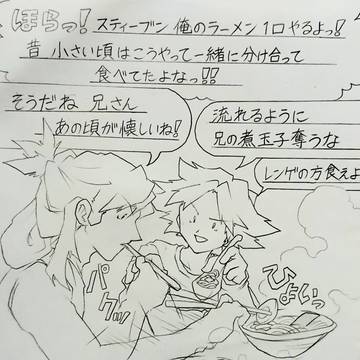 ほらっ! スティーブン 俺のラーメン1口やるよっ!
昔 小さい頃はこうやって一緒に分け合って
食べてたよなっ!!
そうだね 兄さん
あの頃が懐しいね!
流れるように
兄の煮玉子奪うな
レンゲの方食えよ
パクッ
ひょいっ